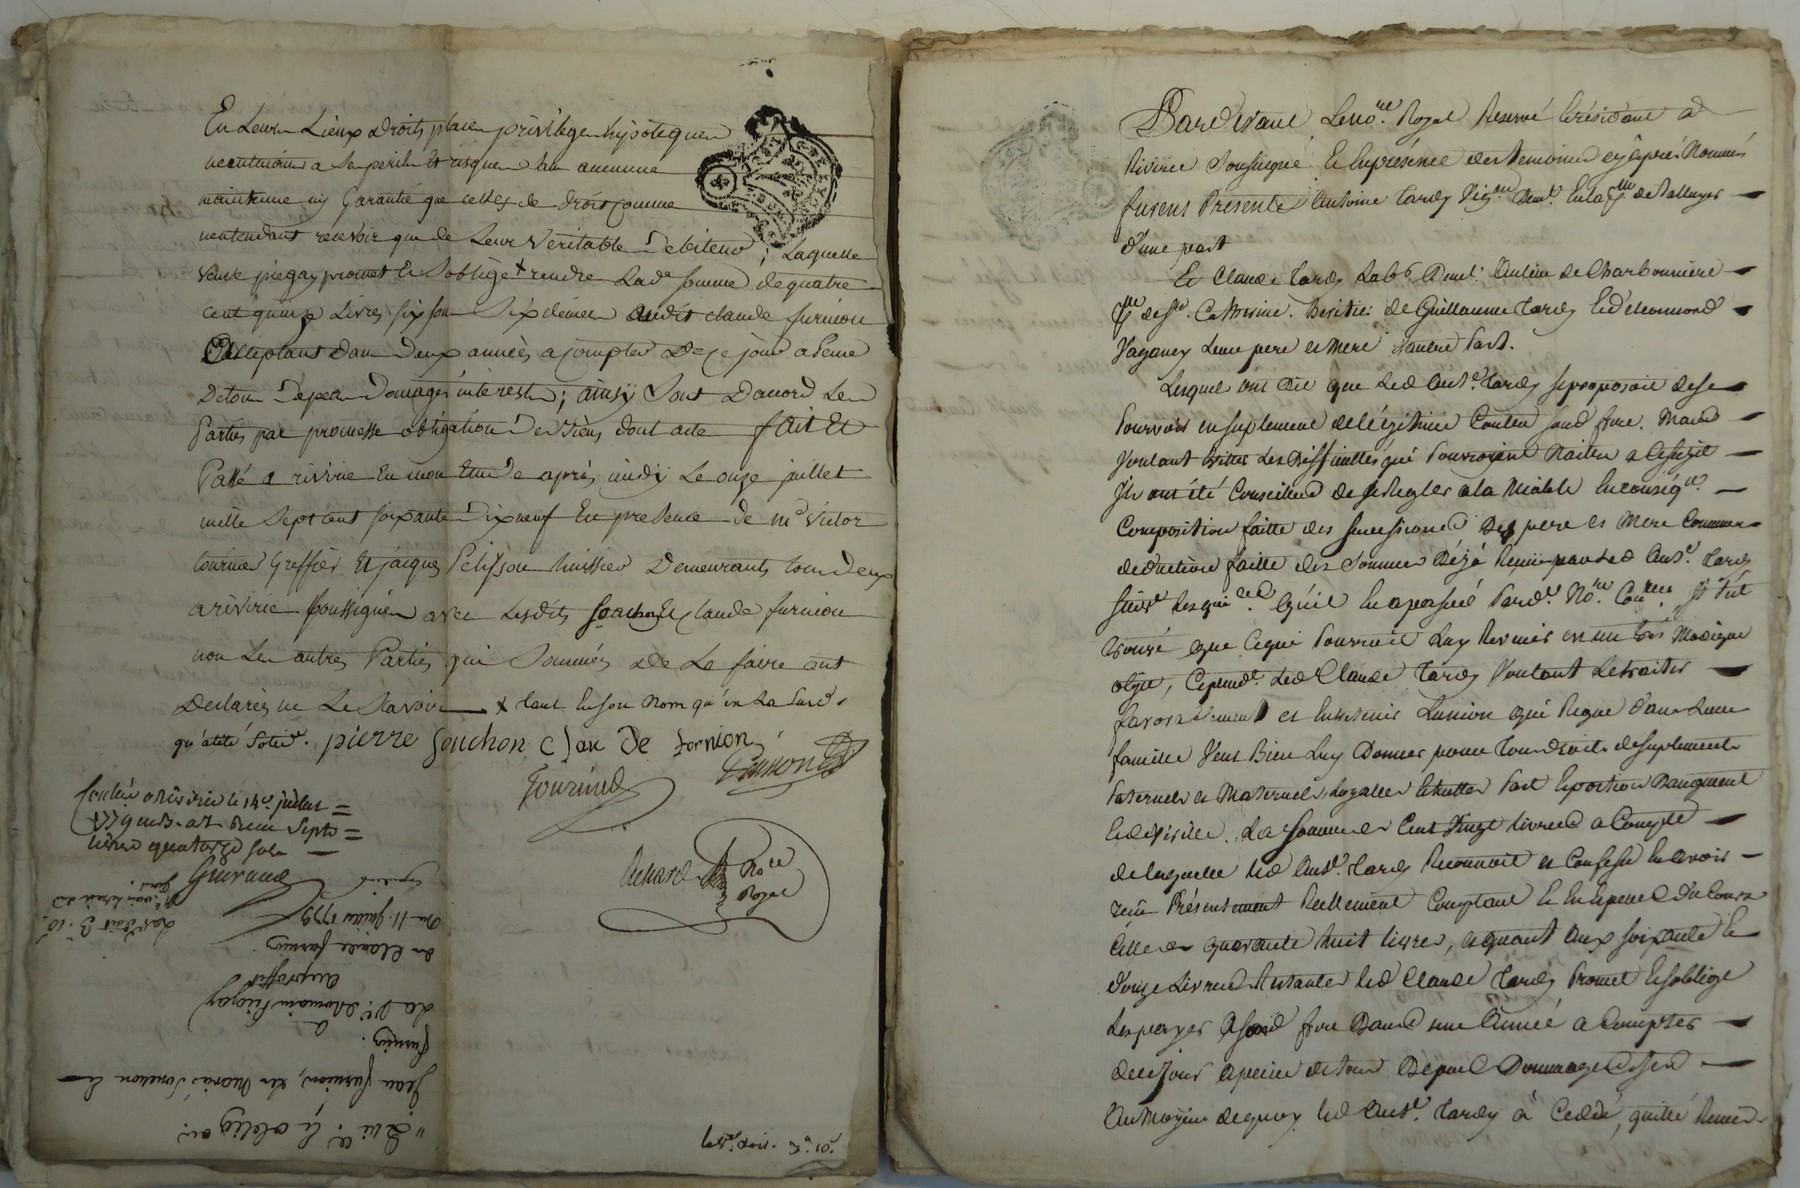 En Leurs Lieux droits places privileges hypoteques
neantmoins a Ses perils Et risques sans aucunne
maintenue ny Garantie que celles de droit comme
nentendant recevoir que de Leur Veritable Debiteur ; Laquelle
veuve piegay promet Et Soblige + rendre Lad.e somme de quatre
cent quinze Livres six sou Six deniers audit claude furnion
acceptant dans Deux années a compter De ce jour a Peine
De tous Depens Domages interests ; ainsy Sont D'accord Les
Parties par promesse obligation De Biens dont acte fait Et
Passé a riverie En mon Etude après midy Le onze juillet
mille Sept cent soixante Dixneuf En presence de m.e Victor
tournier Greffier Et jacques Pelisson huissier Demeurants tous deux
a riverie soussignés avec Lesdits Souchon Et Claude furnion
non Les autres Parties qui Sommés de Le faire ont
Declarés ne Le Savoir x tant En son Nom qu'en La Susd.
pierre Souchon Claude fornion
Tournier
Pelisson
Richard No.re
Royal
Controlé a Riverie le 14e juillet =
1779 =
livres quatorze sols
Guiraud
Du 11. juillet 1779
Claude furnion
La V.e Piegay
Jean furnion, et Marie Souchon
obligaon
Pardevant Le No.re Royal Reservé Et résidant a
Riverie Soussigné Et En présence des temoins cy après Nommés
furent Présents Antoine Tardy Vig.on dem.t En la p.sse de Dalluyer
d'une part
Et Claude Tardy Lab.r dem.t de Charbonniere
p.sse de Ste. Catherine. heritier de Guillaume Tardy Et d'eleonnord
Vaganey Leurs pere et Mere d'autre Part.
Lesquels ont dit que Led Ant.e Tardy se proposoit de se
Pourvoir en suplement de légitime Contre Sond frere. Mais
Voulant Eviter Les Difficultés qui Pourroient Naitre a Ce sujet
Ils ont été Conseillés de se Regler a la Miable En conséq.ce
Composition faitte des successions Des pere et Mere Communs
déduction faitte des Sommes Déjà Reçues par Led Ant.e Tardy
trouvé que Ce qui Pourroit Luy Revenir est un très Modique
objet, Cepend.t Led Claude Tardy Voulant Le traiter
favorablement et Entretenir L'union qui Regne Dans Leur
famille Veut Bien Luy Donner pour tous droits de suplement
Paternels et Maternels, Part Et portion D'augment
La Somme de Cent Vingt livres a Compte
de laquelle led Ant.e Tardy Reconnoit et Confesse En avoir
reçu Présentement Réellement Comptant Et En Espece du Cours
Celle de quarante huit livres, et quant aux soixante Et
douze Livres Restantes led Claude Tardy Promet Et s'oblige
Les payer a Sond frere Dans une Année a Compter
de ce Jour a peine de tous Depens Dommages
Au Moyen de quoy led Ant.e Tardy à Cedé, quitté Remis